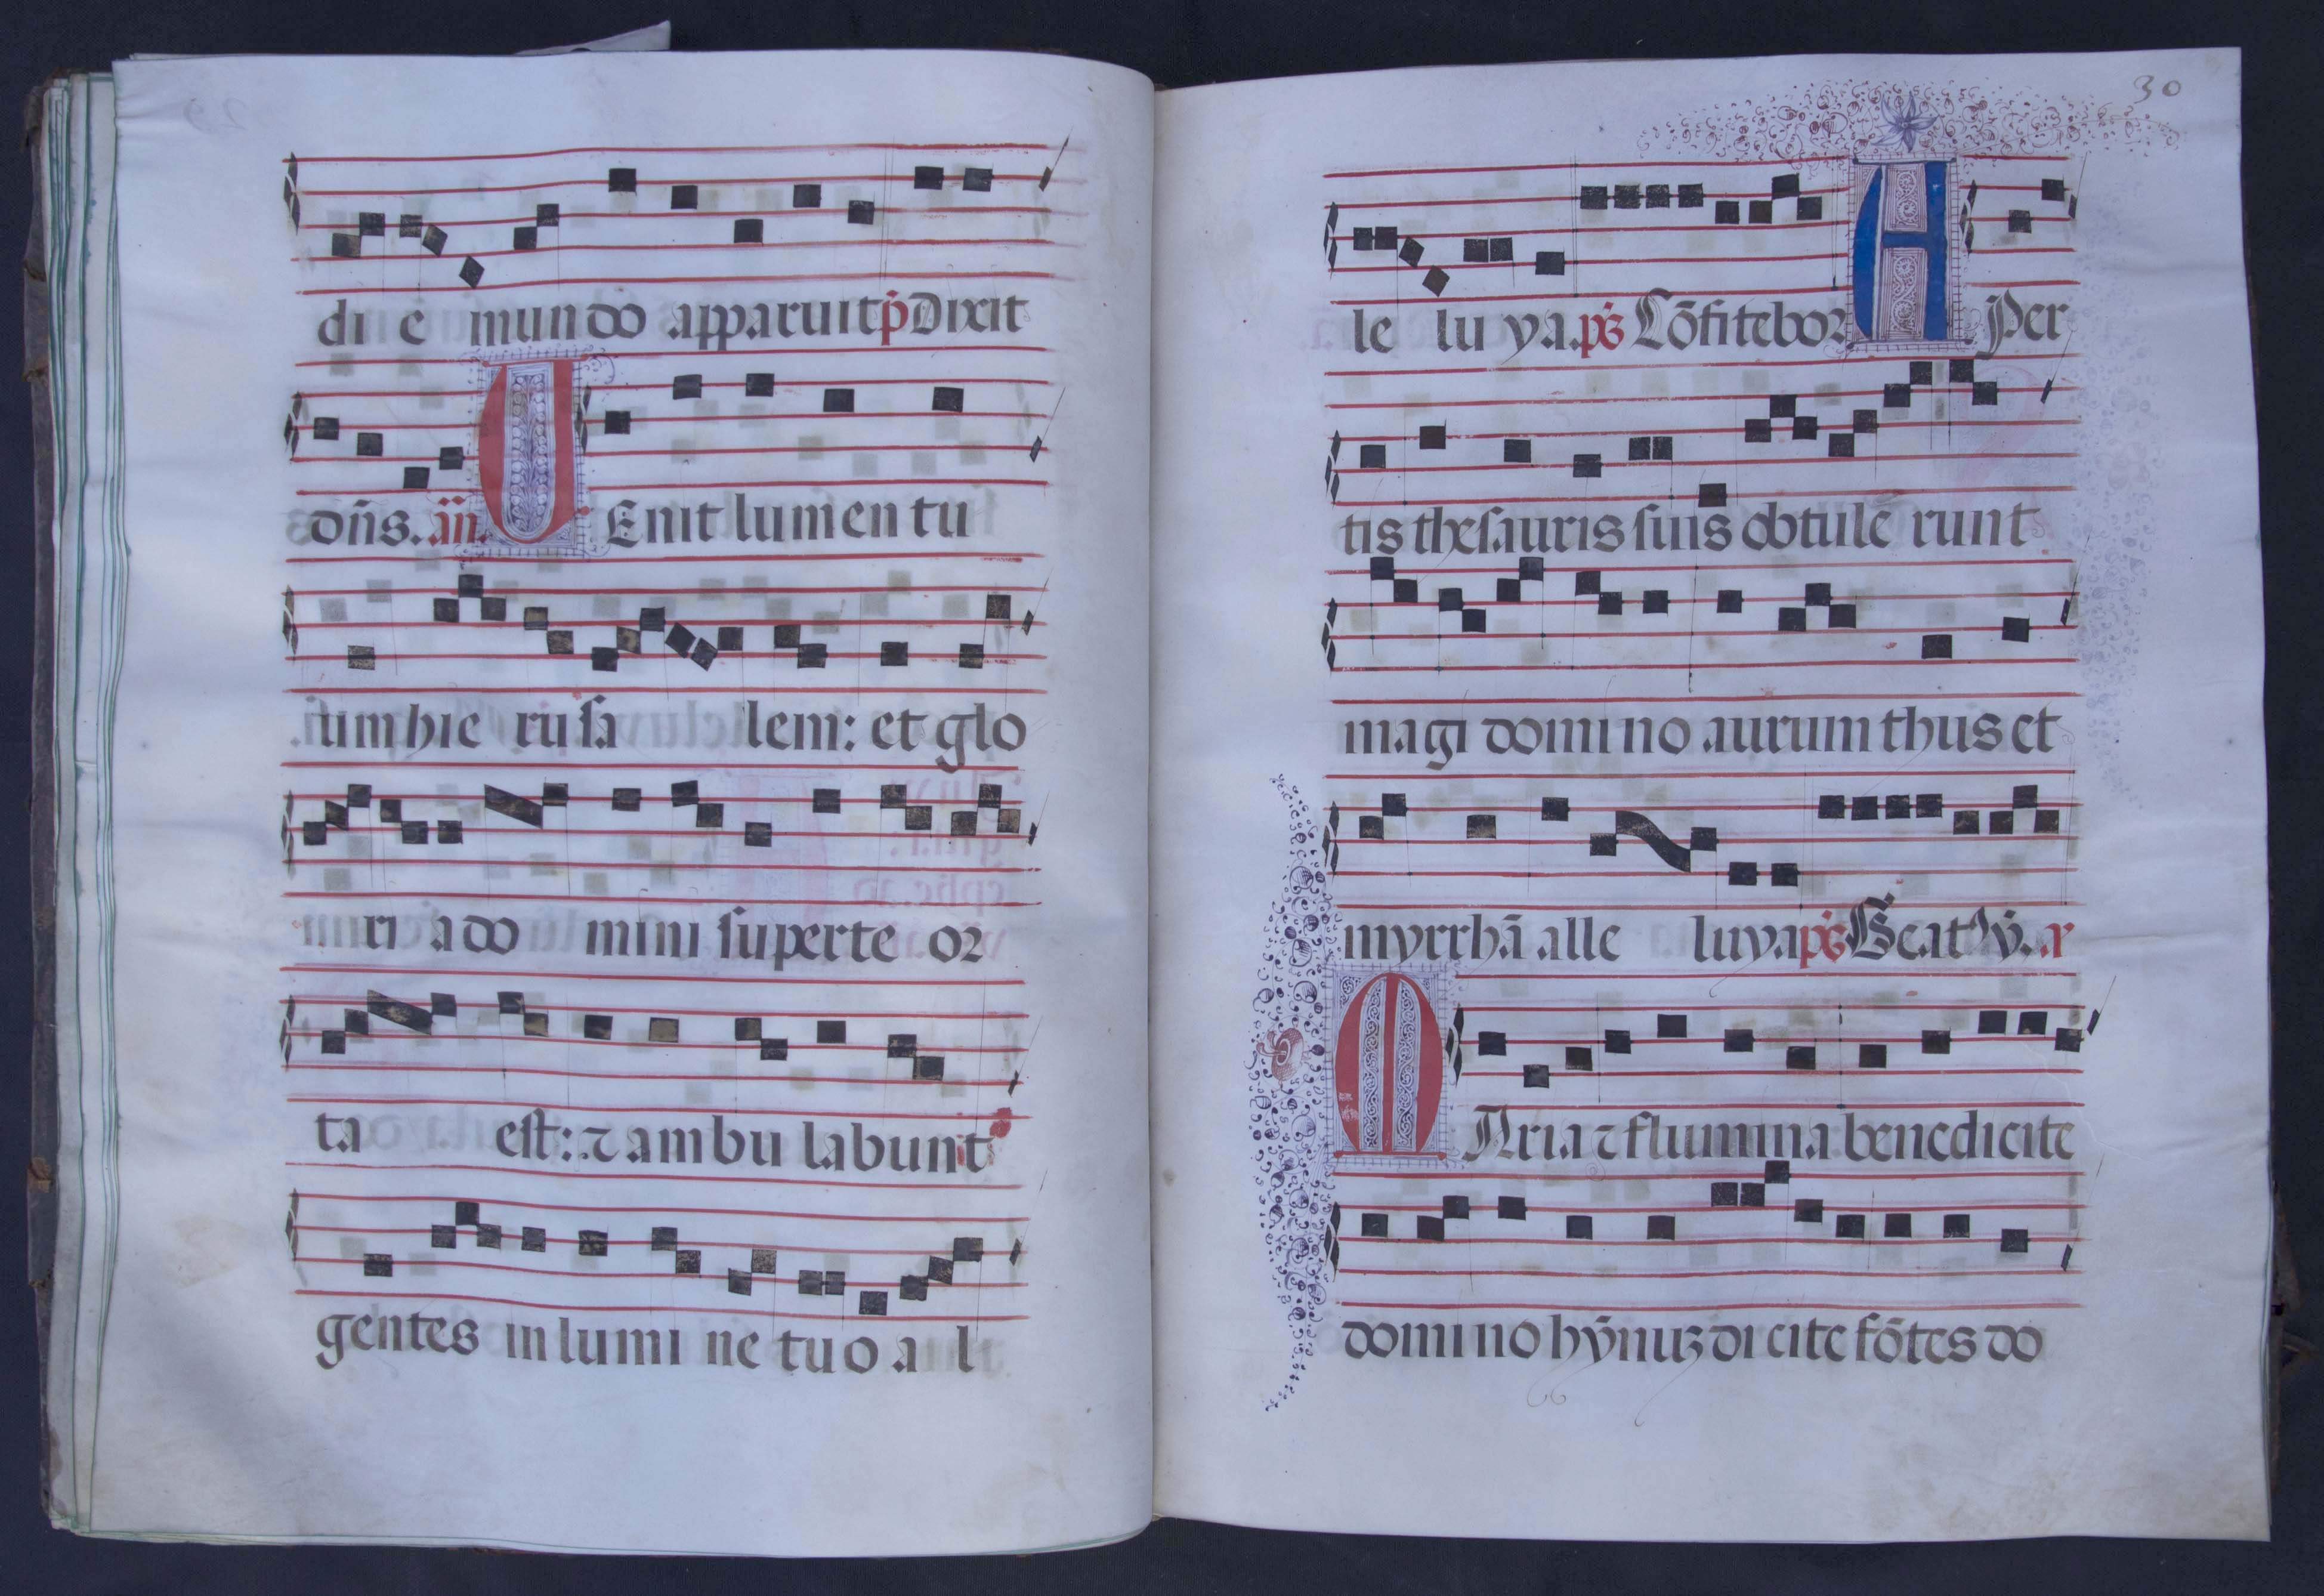 di e mundo apparuit p̄ Dixit
dn̄s. an̄. VEnit lumen tu
um hie ru sa lem: et glo
ri a do mini super te or
ta est: ⁊ ambu labunt
gentes in lumi ne tuo a l
30
le lu ya. ps̄ Cōfitebor APer
tis thesauris suis obtule runt
magi domi no aurum thus et
myrrhā alle luya ps̄ Beat⁹ v̄.
MAria ⁊ flumina benedicite
domi no hȳnuꝫ di cite fōtes do